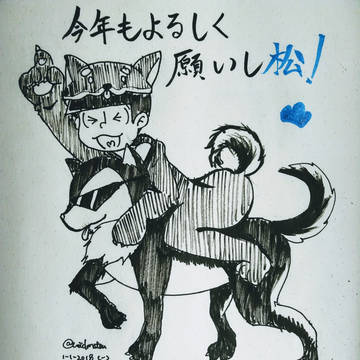 今年もよろしく
願いし松!
1-1-2018